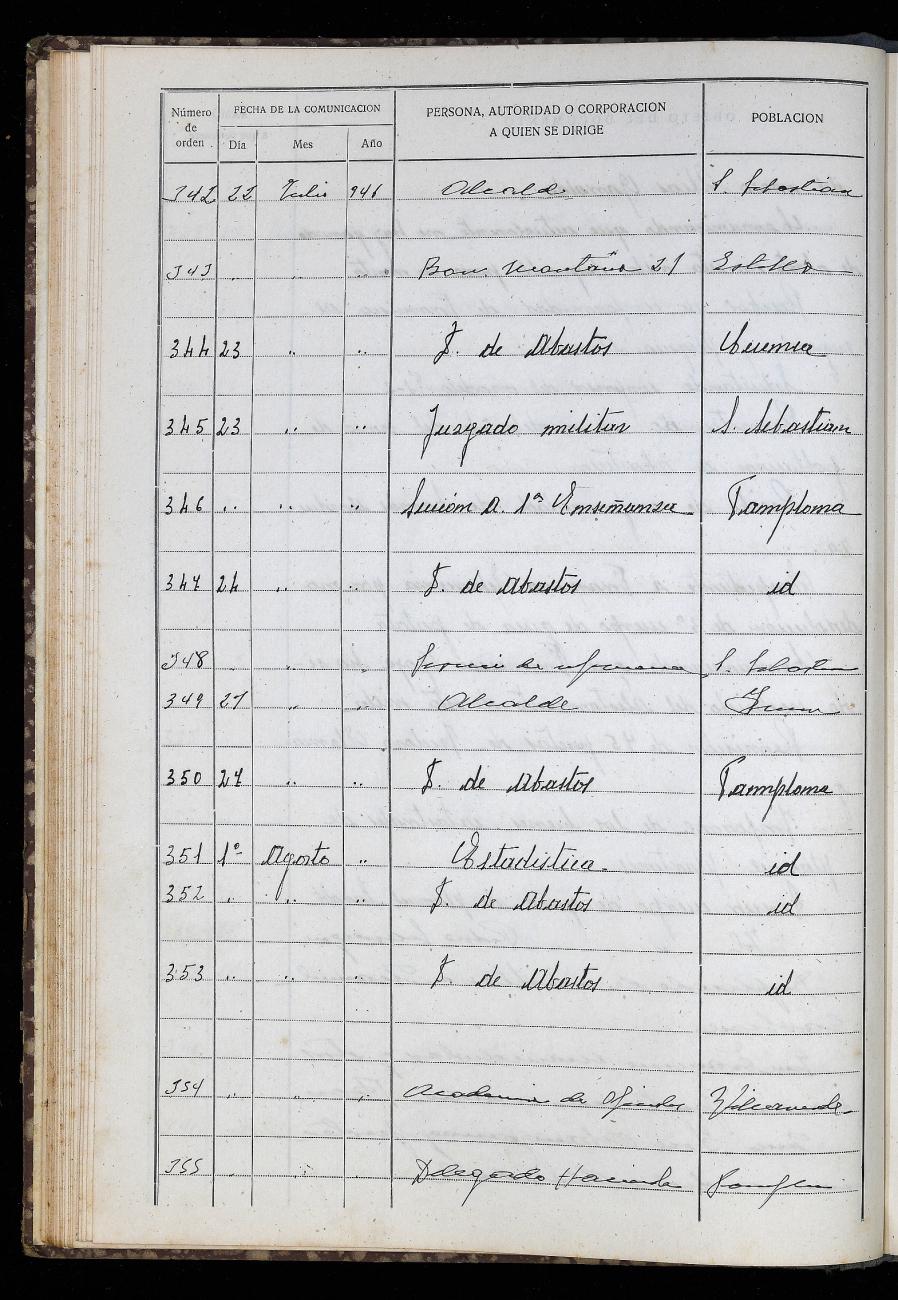 Número de orden FECHA DE LA COMUNICACION PERSONA, AUTORIDAD O CORPORACION A QUIEN SE DIRIGE POBLACION
Día Mes Año
342 22 Julio 946 Alcalde S. Sebastian
343 . " " Bon. Montaña 21 Estella
344 23 " " F. de Abastos
345 23 " " Juzgado militar S. Sebastian
346 " " " Sección A. 1ª Enseñanza Pamplona
347 24 " " F. de Abastos id
348 . " " de S. Sebastian
349 27 " " Alcalde Irun
350 27 " " F. de Abastos Pamplona
351 1º Agosto " Estadistica. id
352 . " " F. de Abastos id
353 " " " F. de Abastos id
354 " " " Academia de
355 . " . Delegado Hacienda Pamplona